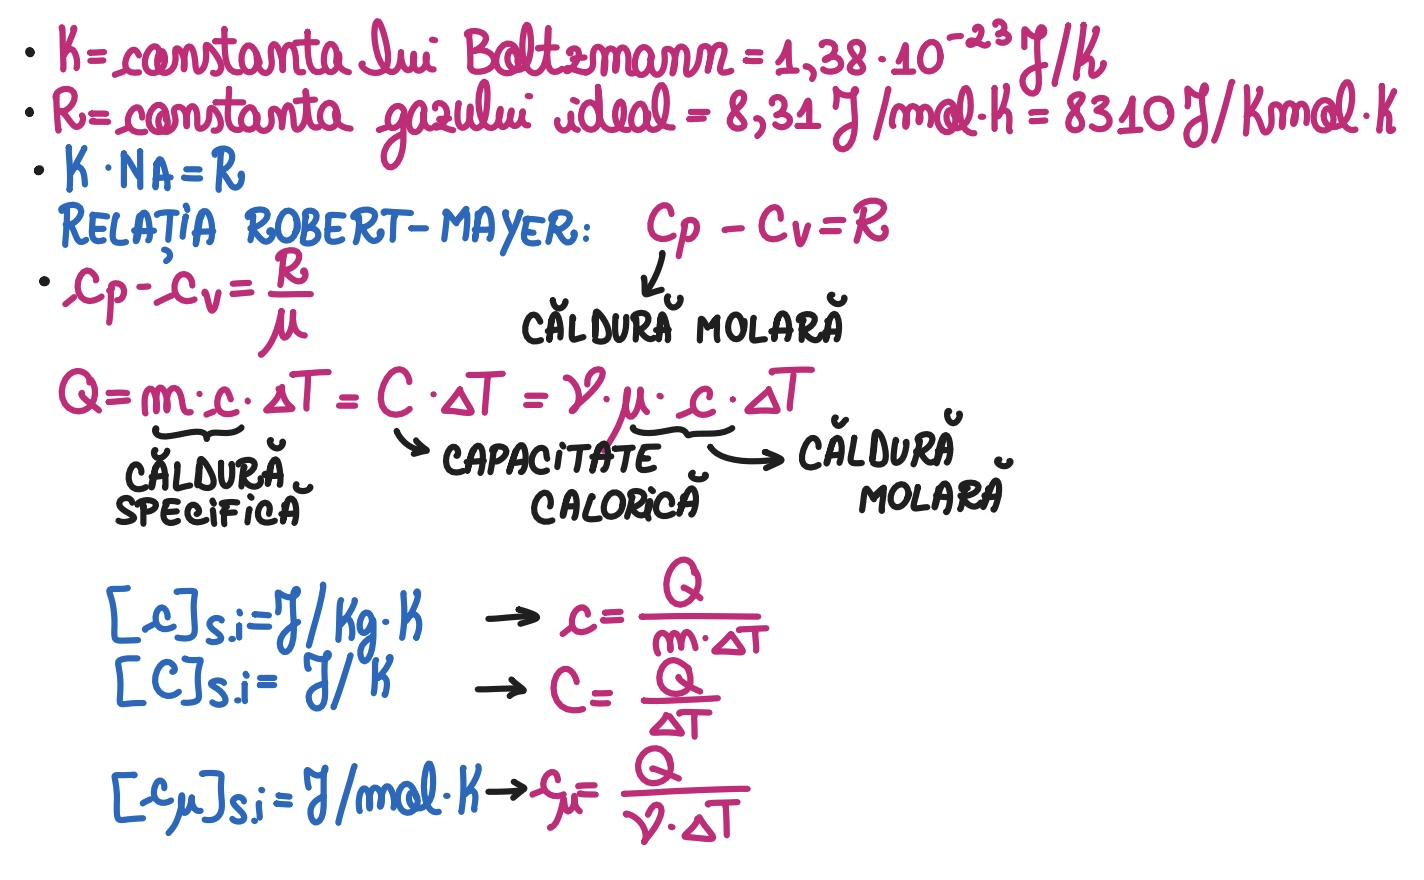 • K = constanta lui Boltzmann = 1,38 · 10⁻²³ J/K
• R = constanta gazului ideal = 8,31 J/mol·K = 8310 J/Kmol·K
• K · NA = R
RELAȚIA ROBERT-MAYER: Cp - Cv = R
• cp - cv = R/μ
CĂLDURĂ MOLARĂ
Q = m · c · ΔT = C · ΔT = ν · μ · c · ΔT
CĂLDURĂ SPECIFICĂ
CAPACITATE CALORICĂ
CĂLDURĂ MOLARĂ
[c]s.i = J/Kg·K → c = Q/m·ΔT
[C]s.i = J/K → C = Q/ΔT
[cμ]s.i = J/mol·K → cμ = Q/ν·ΔT